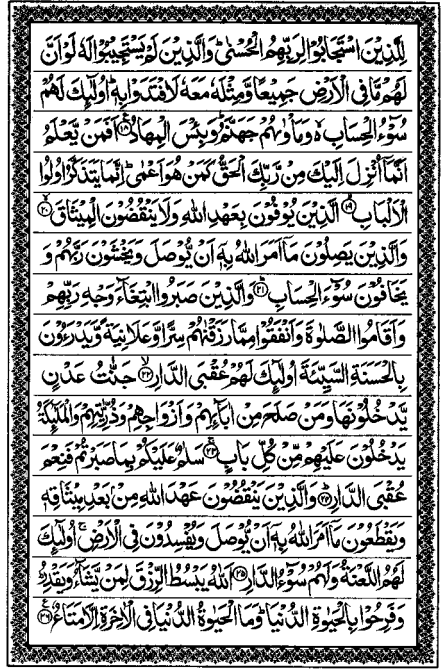 لِلَّذِیۡنَ اسۡتَجَابُوۡا لِرَبِّهِمُ الۡحُسۡنٰی ؕ وَالَّذِیۡنَ لَمۡ یَسۡتَجِیۡبُوۡا لَهٗ لَوۡ اَنَّ
لَهُمۡ مَّا فِی الۡاَرۡضِ جَمِیۡعًا وَّمِثۡلَهٗ مَعَهٗ لَافۡتَدَوۡا بِهٖ ؕ اُولٰٓئِكَ لَهُمۡ
سُوۡٓءُ الۡحِسَابِ ۙ۬ وَمَاۡوٰىهُمۡ جَهَنَّمُ ؕ وَبِئۡسَ الۡمِهَادُ ﴿۱۸﴾ اَفَمَنۡ یَّعۡلَمُ
اَنَّمَاۤ اُنۡزِلَ اِلَیۡكَ مِنۡ رَّبِّكَ الۡحَقُّ كَمَنۡ هُوَ اَعۡمٰی ؕ اِنَّمَا یَتَذَكَّرُ اُولُوا
الۡاَلۡبَابِ ﴿۱۹﴾ الَّذِیۡنَ یُوۡفُوۡنَ بِعَهۡدِ اللّٰهِ وَلَا یَنۡقُضُوۡنَ الۡمِیۡثَاقَ ﴿۲۰﴾
وَالَّذِیۡنَ یَصِلُوۡنَ مَاۤ اَمَرَ اللّٰهُ بِهٖۤ اَنۡ یُّوۡصَلَ وَیَخۡشَوۡنَ رَبَّهُمۡ وَ
یَخَافُوۡنَ سُوۡٓءَ الۡحِسَابِ ﴿۲۱﴾ وَالَّذِیۡنَ صَبَرُوا ابۡتِغَآءَ وَجۡهِ رَبِّهِمۡ
وَاَقَامُوا الصَّلٰوةَ وَاَنۡفَقُوۡا مِمَّا رَزَقۡنٰهُمۡ سِرًّا وَّعَلَانِیَةً وَّیَدۡرَءُوۡنَ
بِالۡحَسَنَةِ السَّیِّئَةَ اُولٰٓئِكَ لَهُمۡ عُقۡبَی الدَّارِ ﴿۲۲﴾ جَنّٰتُ عَدۡنٍ
یَّدۡخُلُوۡنَهَا وَمَنۡ صَلَحَ مِنۡ اٰبَآئِهِمۡ وَاَزۡوَاجِهِمۡ وَذُرِّیّٰتِهِمۡ وَالۡمَلٰٓئِكَةُ
یَدۡخُلُوۡنَ عَلَیۡهِمۡ مِّنۡ كُلِّ بَابٍ ﴿۲۳﴾ سَلٰمٌ عَلَیۡكُمۡ بِمَا صَبَرۡتُمۡ فَنِعۡمَ
عُقۡبَی الدَّارِ ﴿۲۴﴾ وَالَّذِیۡنَ یَنۡقُضُوۡنَ عَهۡدَ اللّٰهِ مِنۡۢ بَعۡدِ مِیۡثَاقِهٖ
وَیَقۡطَعُوۡنَ مَاۤ اَمَرَ اللّٰهُ بِهٖۤ اَنۡ یُّوۡصَلَ وَیُفۡسِدُوۡنَ فِی الۡاَرۡضِ ۙ اُولٰٓئِكَ
لَهُمُ اللَّعۡنَةُ وَلَهُمۡ سُوۡٓءُ الدَّارِ ﴿۲۵﴾ اَللّٰهُ یَبۡسُطُ الرِّزۡقَ لِمَنۡ یَّشَآءُ وَیَقۡدِرُ ؕ
وَفَرِحُوۡا بِالۡحَیٰوةِ الدُّنۡیَا ؕ وَمَا الۡحَیٰوةُ الدُّنۡیَا فِی الۡاٰخِرَةِ اِلَّا مَتَاعٌ ﴿۲۶﴾